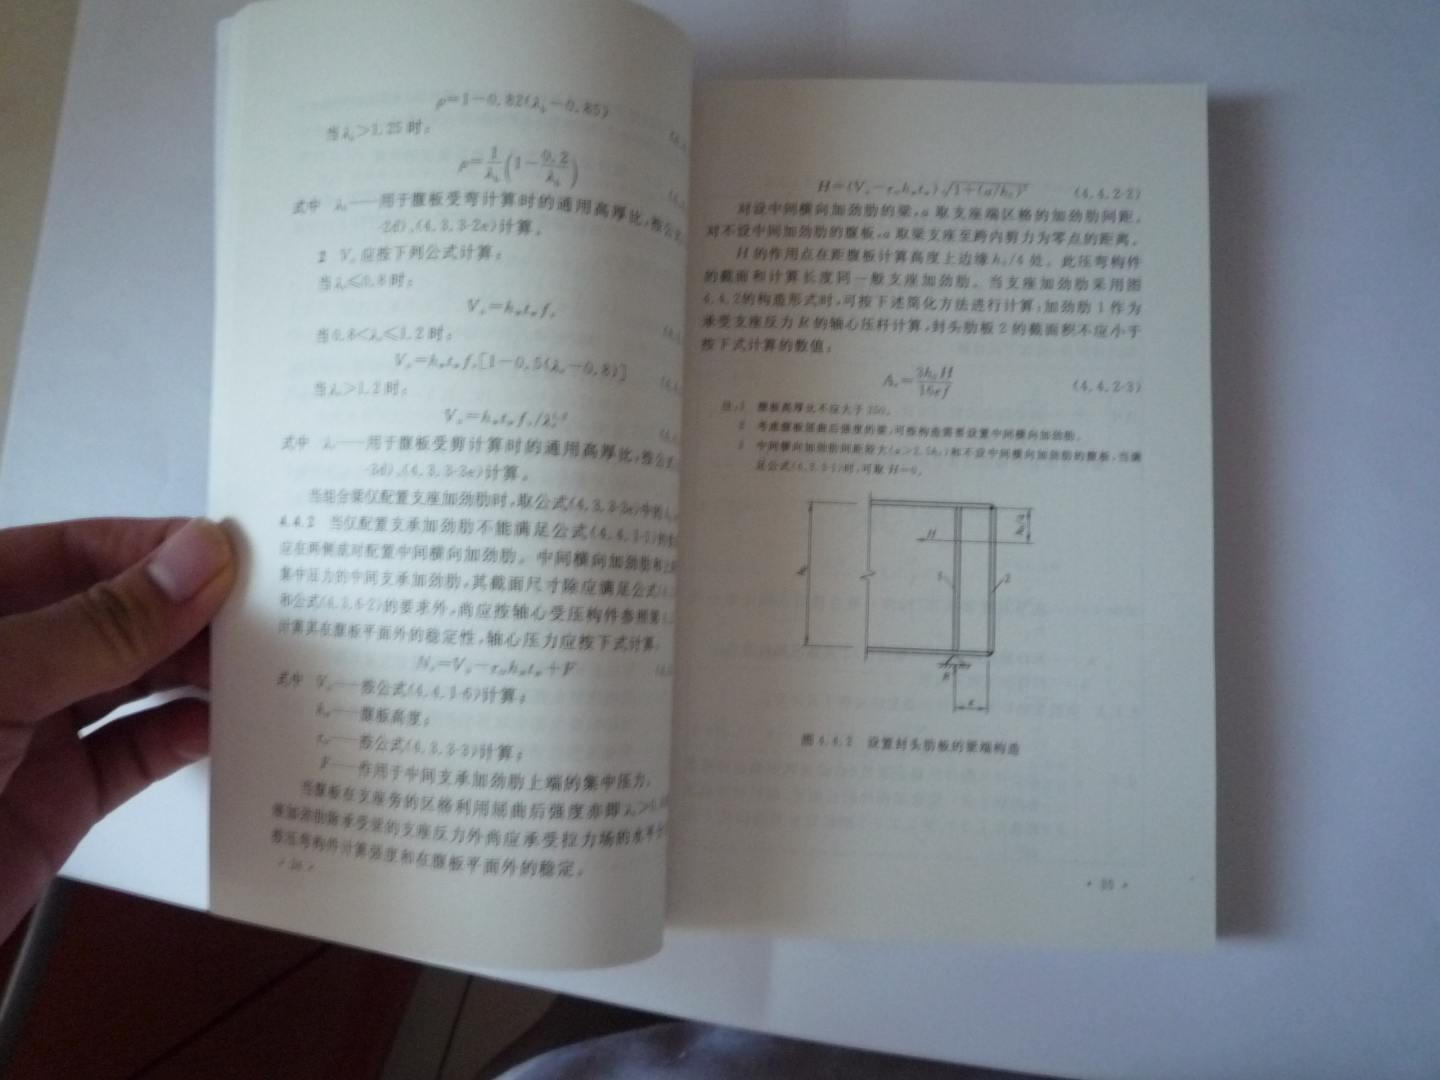 ρ=1-0.82(λb-0.85)
当λb>1.25时:
ρ=1/λb(1-0.2/λb)
式中 λb——用于腹板受弯计算时的通用高厚比,按公式
-2d)、(4.3.3-2e)计算。
2 Vu应按下列公式计算:
当λs≤0.8时:
Vu=hwtwfv
当0.8<λs≤1.2时:
Vu=hwtwfv[1-0.5(λs-0.8)]
当λs>1.2时:
Vu=hwtwfv/λs^1.2
式中 λs——用于腹板受剪计算时的通用高厚比,按公式
-3d)、(4.3.3-3e)计算。
当组合梁仅配置支座加劲肋时,取公式(4.3.3-3e)中的
4.4.2 当仅配置支承加劲肋不能满足公式(4.4.1-1)的
应在两侧成对配置中间横向加劲肋。中间横向加劲肋和上
集中压力的中间支承加劲肋,其截面尺寸除应满足公式
和公式(4.3.6-2)的要求外,尚应按轴心受压构件参照第
计算其在腹板平面外的稳定性,轴心压力应按下式计算:
Ns=Vu-τcrhwtw+F
式中 Vu——按公式(4.4.1-6)计算;
hw——腹板高度;
τcr——按公式(4.3.3-3)计算;
F——作用于中间支承加劲肋上端的集中压力。
当腹板在支座旁的区格利用屈曲后强度亦即λs>0.8
座加劲肋除承受梁的支座反力外尚应承受拉力场的水平
按压弯构件计算强度和在腹板平面外的稳定。
H=(Vu-τcrhwtw)√1+(a/h0)² (4.4.2-2)
对设中间横向加劲肋的梁,a取支座端区格的加劲肋间距。
对不设中间加劲肋的腹板,a取梁支座至跨内剪力为零点的距离。
H的作用点在距腹板计算高度上边缘h0/4处。此压弯构件
的截面和计算长度同一般支座加劲肋。当支座加劲肋采用图
4.4.2的构造形式时,可按下述简化方法进行计算:加劲肋1作为
承受支座反力R的轴心压杆计算,封头肋板2的截面积不应小于
按下式计算的数值:
Ac=3h0H/16ef (4.4.2-3)
注:1 腹板高厚比不应大于250。
2 考虑腹板屈曲后强度的梁,可按构造需要设置中间横向加劲肋。
3 中间横向加劲肋间距较大(a>2.5h0)和不设中间横向加劲肋的腹板,当满
足公式(4.3.3-1)时,可取H=0。
H
1
2
R
e
图4.4.2 设置封头肋板的梁端构造